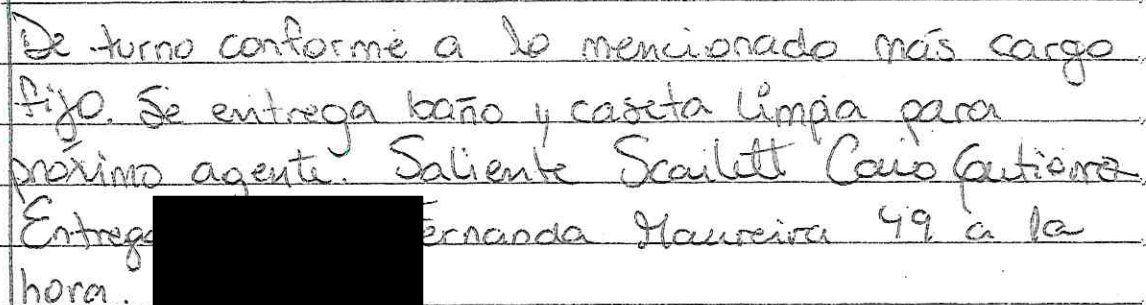 De turno conforme a lo mencionado más cargo
fijo. Se entrega baño y caseta limpia para
próximo agente. Saliente Scarlett Gutiérrez
Entrega ernanda Maureira 49 a la
hora.